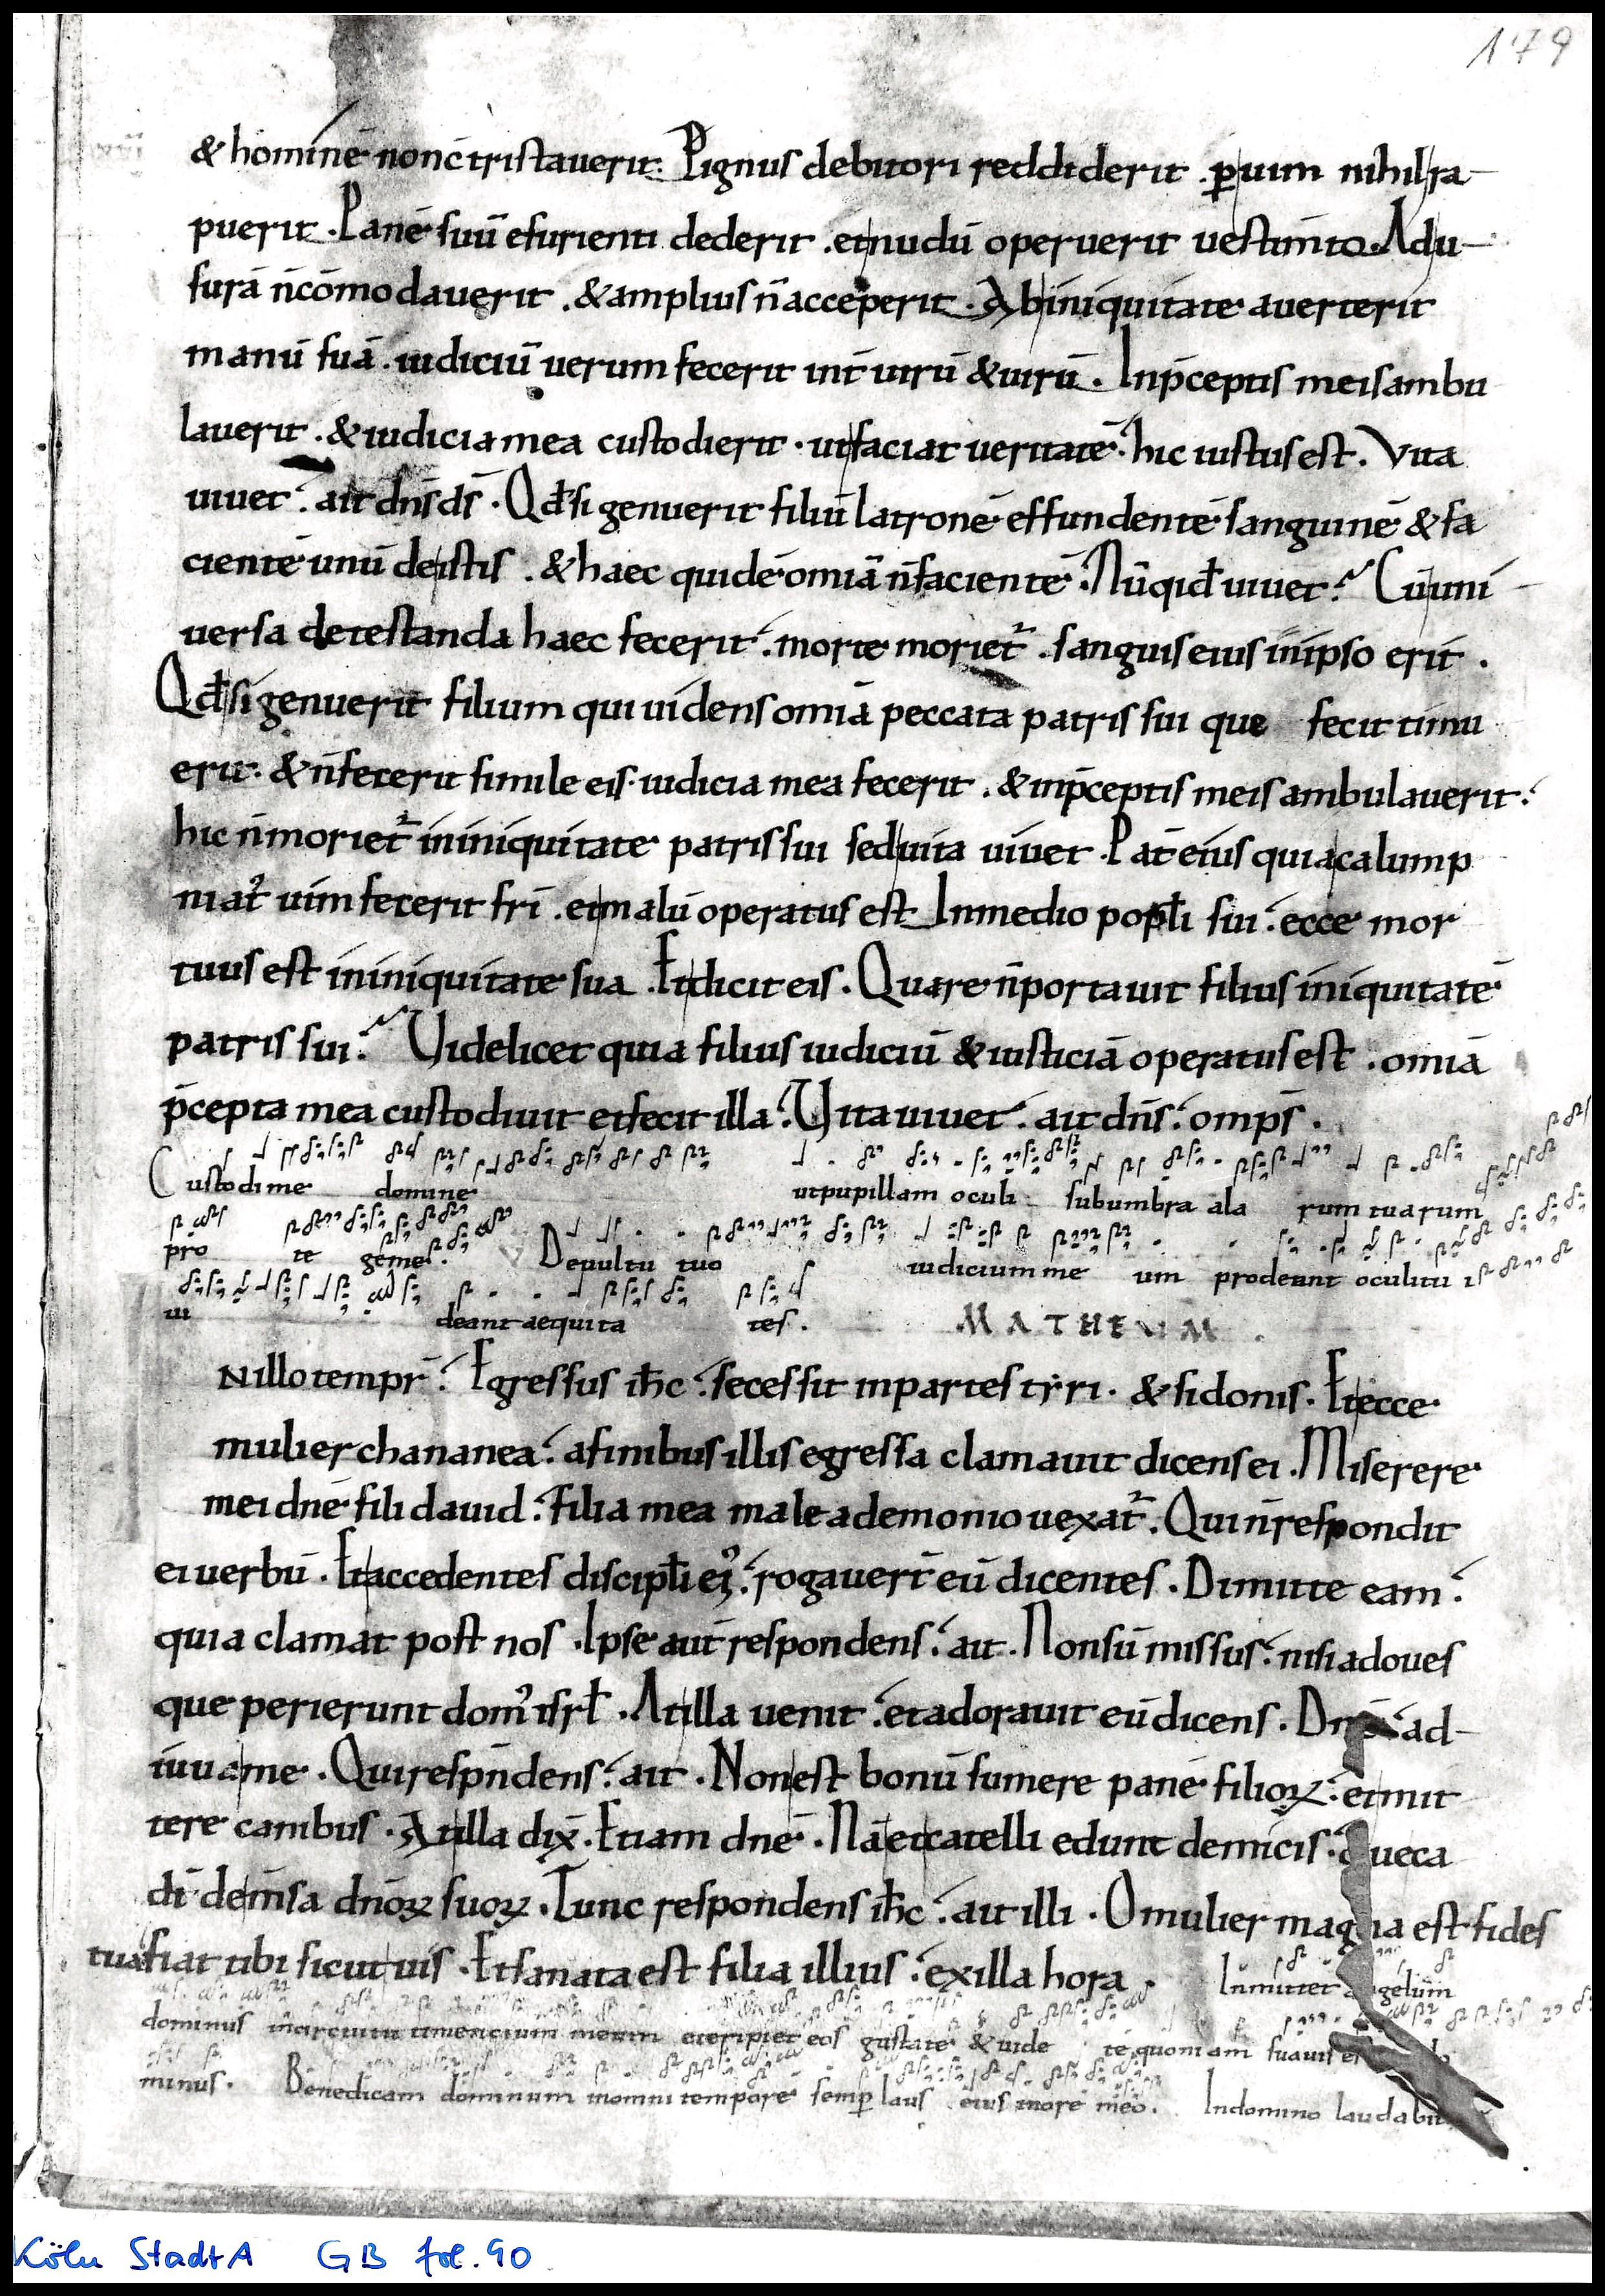 179
& hominē non ctristauerit. Pignus debitori reddiderit. ꝑ uim nihil ra
puerit. Panē suū esurienti dederit. et nudū operuerit uestimto. Ad u
surā n̄ cōmodauerit. & amplius n̄ acceperit. Ab iniquitate auerterit
manū suā. iudiciū uerum fecerit int̄ uirū & uirū. In p̄ceptis meis ambu
lauerit. & iudicia mea custodierit. ut faciat ueritatē. hic iustus est. Vita
uiuet. ait dn̄s ds̄. Qđ si genuerit filiū latronē effundentē sanguinē & fa
cientē unū de istis. & haec quidē omīa n̄ facientē. Nūqid̄ uiuet? Cū uni
uersa detestanda haec fecerit. morte moriet᷑. sanguis eius in ipso erit.
Qđ si genuerit filium qui uidens omīa peccata patris sui que fecit timu
erit. & n̄ fecerit simile eis. iudicia mea fecerit. & in p̄ceptis meis ambulauerit.
hic n̄ moriet᷑ in iniquitate patris sui sed uita uiuet. Pat̄ eius quia calump
niat᷑ uim fecerit fri. et malū operatus est In medio popłi sui. ecce mor
tuus est in iniquitate sua. Et dicit eis. Quare n̄ portauit filius iniquitatē
patris sui? Videlicet quia filius iudiciū & iusticiā operatus est. omīa
p̄cepta mea custodiuit et fecit illa. Vita uiuet. ait dn̄s. omps̄.
Custodi me domine ut pupillam oculi sub umbra ala rum tuarum
pro te geme. De uultu tuo iudicium me um prodeant oculi tu i
ui deant aequita tes. MATHEUM.
N illo tempr̄. Egressus ih̄c. secessit in partes tyri. & sidonis. Et ecce
mulier chananea. a finibus illis egressa clamauit dicens ei. Miserere
mei dn̄e fili dauid. filia mea male a demonio uexat᷑. Qui n̄ respondit
ei uerbū. Et accedentes discipłi ei᷒. rogauer̄ eū dicentes. Dimitte eam.
quia clamat post nos. Ipse aut̄ respondens. ait. Non sū missus. nisi ad oues
que perierunt dom᷒ isrł. At illa uenit. et adorauit eū dicens. ad
iuua me. Qui respn̄dens. ait. Non est bonū sumere panē filioꝝ. et mit
tere canibus. At illa dix̄. Etiam dn̄e. Nā et catelli edunt de micis. que ca
dt̄ de m̄sa dn̄oꝝ suoꝝ. Tunc respondens ih̄c. ait illi. O mulier magna est fides
tua fiat tibi sicut uis. Et sanata est filia illius. ex illa hora. Inmittet angelum
dominus in circuitu timencium meum et eripiet eos gustate & uide te quoniam suauis
minus. Benedicam dominum in omni tempore semꝑ laus eius in ore meo. In domino laudabit
Köln StadtA GB fol. 90